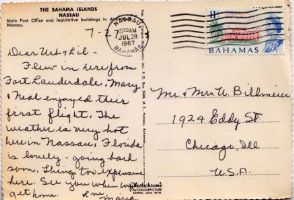 THE BAHAMA ISLANDS
NASSAU
Main Post Office and legislative buildings in
Nassau.
7-27
NASSAU
JUL 28
1967
BAHAMAS
BAHAMAS
Dear Art & Lil-
Flew in here from
Fort Lauderdale, Mary
& Neal enjoyed their
first flight. The
weather is very hot
here in Nassau, Florida
is lovely - going back
soon. Things too expensive
here. See you when we
get home. Love
Mr. & Mrs. A. Billmeier
1924 Eddy St
Chicago, Ill
U.S.A.